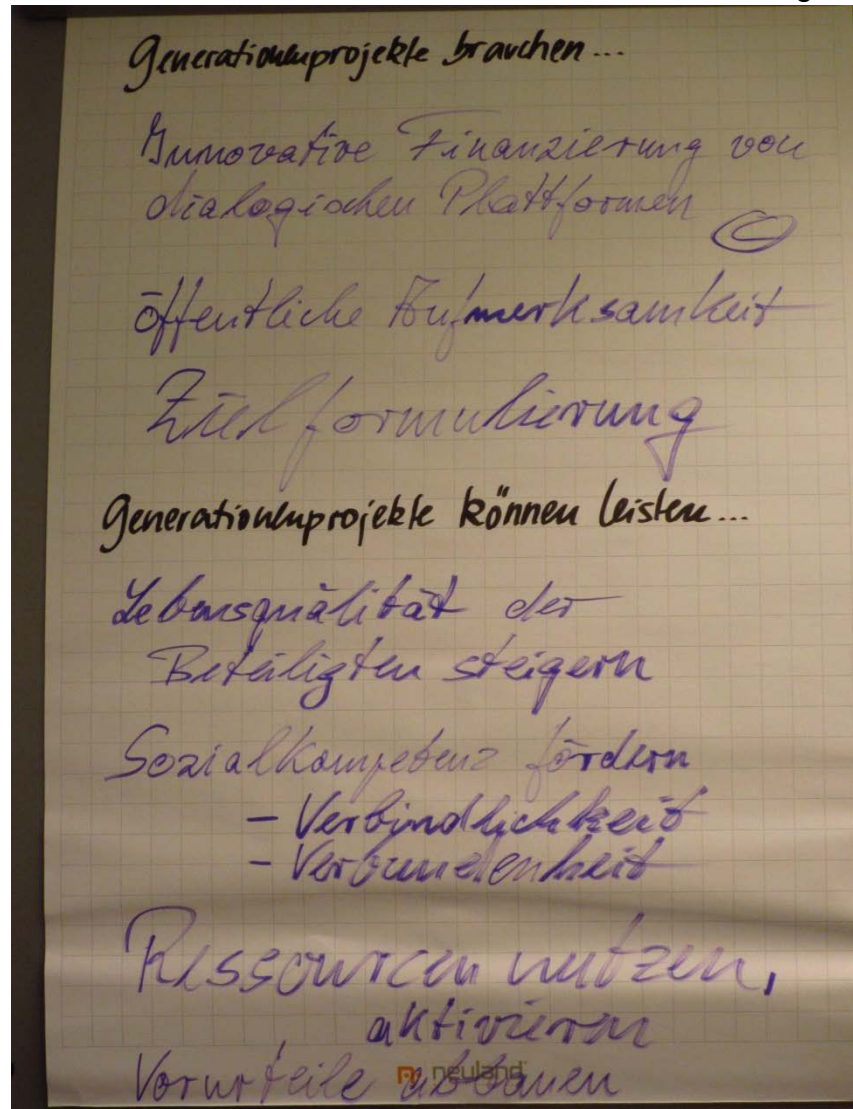 Generationenprojekte brauchen...
Innovative Finanzierung von
dialogischen Plattformen
öffentliche Aufmerksamkeit
Zielformulierung
Generationenprojekte können leisten...
Lebensqualität der
Beteiligten steigern
Sozialkompetenz fördern
- Verbindlichkeit
- Verbundenheit
Ressourcen nutzen,
aktivieren
Vorurteile abbauen
neuland